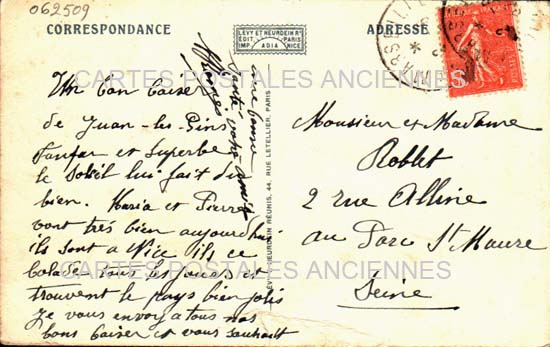 062509
CORRESPONDANCE
LÉVY ET NEURDEIN Rs
EDIT. PARIS
IMP. ADIA NICE
ADRESSE
MARSEILLE
CARTES POSTALES ANCIENNES
Un bon baiser
de Juan-les-Pins
Fanfan et Superbe
le Soleil lui fait du
bien. Maria et Pierre
vont très bien aujourd'hui
ils sont a Nice ils se
balade tous les jours et
trouvent le pays bien jolis
Je vous envoy a tous nos
bons baiser et vous souhait
une bonne
Santé votre amie
LÉVY & NEURDEIN RÉUNIS, 44, RUE LETELLIER, PARIS
Monsieur et Madame
Roblet
2 rue Alline
au Parc St Maure
Seine
CARTES POSTALES ANCIENNES